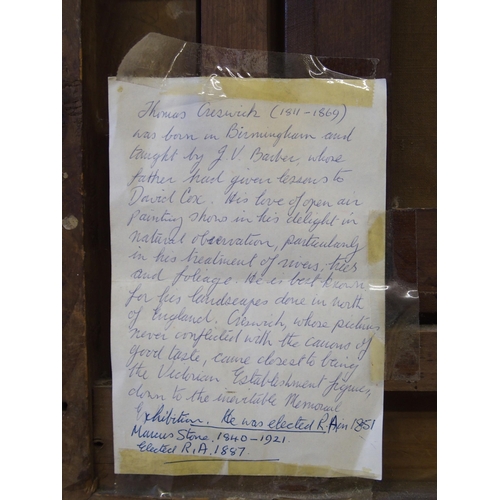 Thomas Creswick (1811-1869)
was born in Birmingham and
taught by J.V. Barber, whose
father had given lessons to
David Cox. His love of open air
painting shows in his delight in
natural observation, particularly
in his treatment of rivers, trees
and foliage. He is best known
for his landscapes done in north
of England. Creswick, whose pictures
never conflicted with the canons of
good taste, came closest to being
the Victorian Establishment figure,
down to the inevitable Memorial
Exhibition. He was elected R.A in 1851
Marcus Stone. 1840-1921.
Elected R.A. 1887.